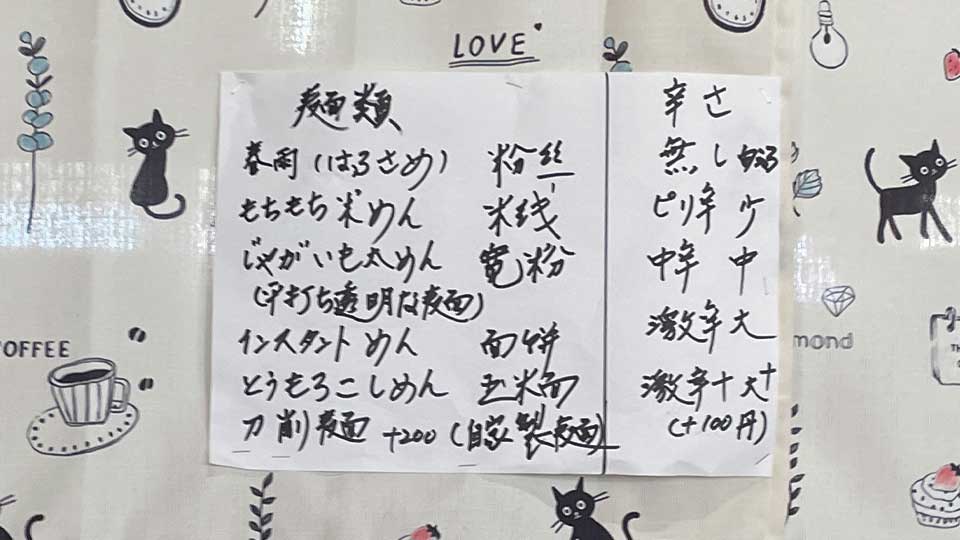 LOVE
麺類
春雨(はるさめ) 粉丝
もちもち米めん 米线
じゃがいも太めん 寛粉
(平打ち透明な麺)
インスタントめん 面饼
とうもろこしめん 玉米面
刀削麺 +200 (自家製麺)
辛さ
無し 白汤
ピリ辛 少
中辛 中
激辛 大
激辛+ 大+
(+100円)
OFFEE
mond
TH